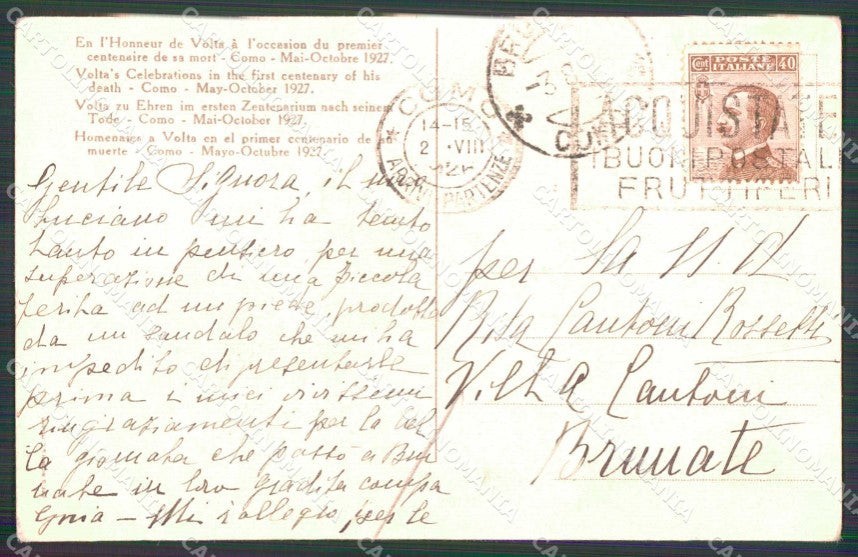 En l'Honneur de Volta à l'occasion du premier
centenaire de sa mort - Como - Mai-Octobre 1927.
Volta's Celebrations in the first centenary of his
death - Como - May-October 1927.
Volta zu Ehren im ersten Zentenarium nach seinem
Tode - Como - Mai-October 1927.
Homenajes a Volta en el primer centenario de su
muerte - Como - Mayo-Octubre 1927
Gentile Signora, il mio
Luciano mi ha tenuto
tanto in pensiero, per una
superazione di una piccola
ferita ad un piede, prodotta
da un sandalo che mi ha
impedito di presentarle
prima i miei vivissimi
ringraziamenti per la bel
la giornata che passò a Bru
nate in loro gradita compa
gnia - Mi rallegro per le
COMO
14-15
2 VIII
PARTENZE
POSTE ITALIANE
Cent 40
ACQUISTATE
I BUONI POSTALI
FRUTTIFERI
per la
Rita Cantoni Rossetti
Villa Cantoni
Brunate
CARTOLINOMANIA